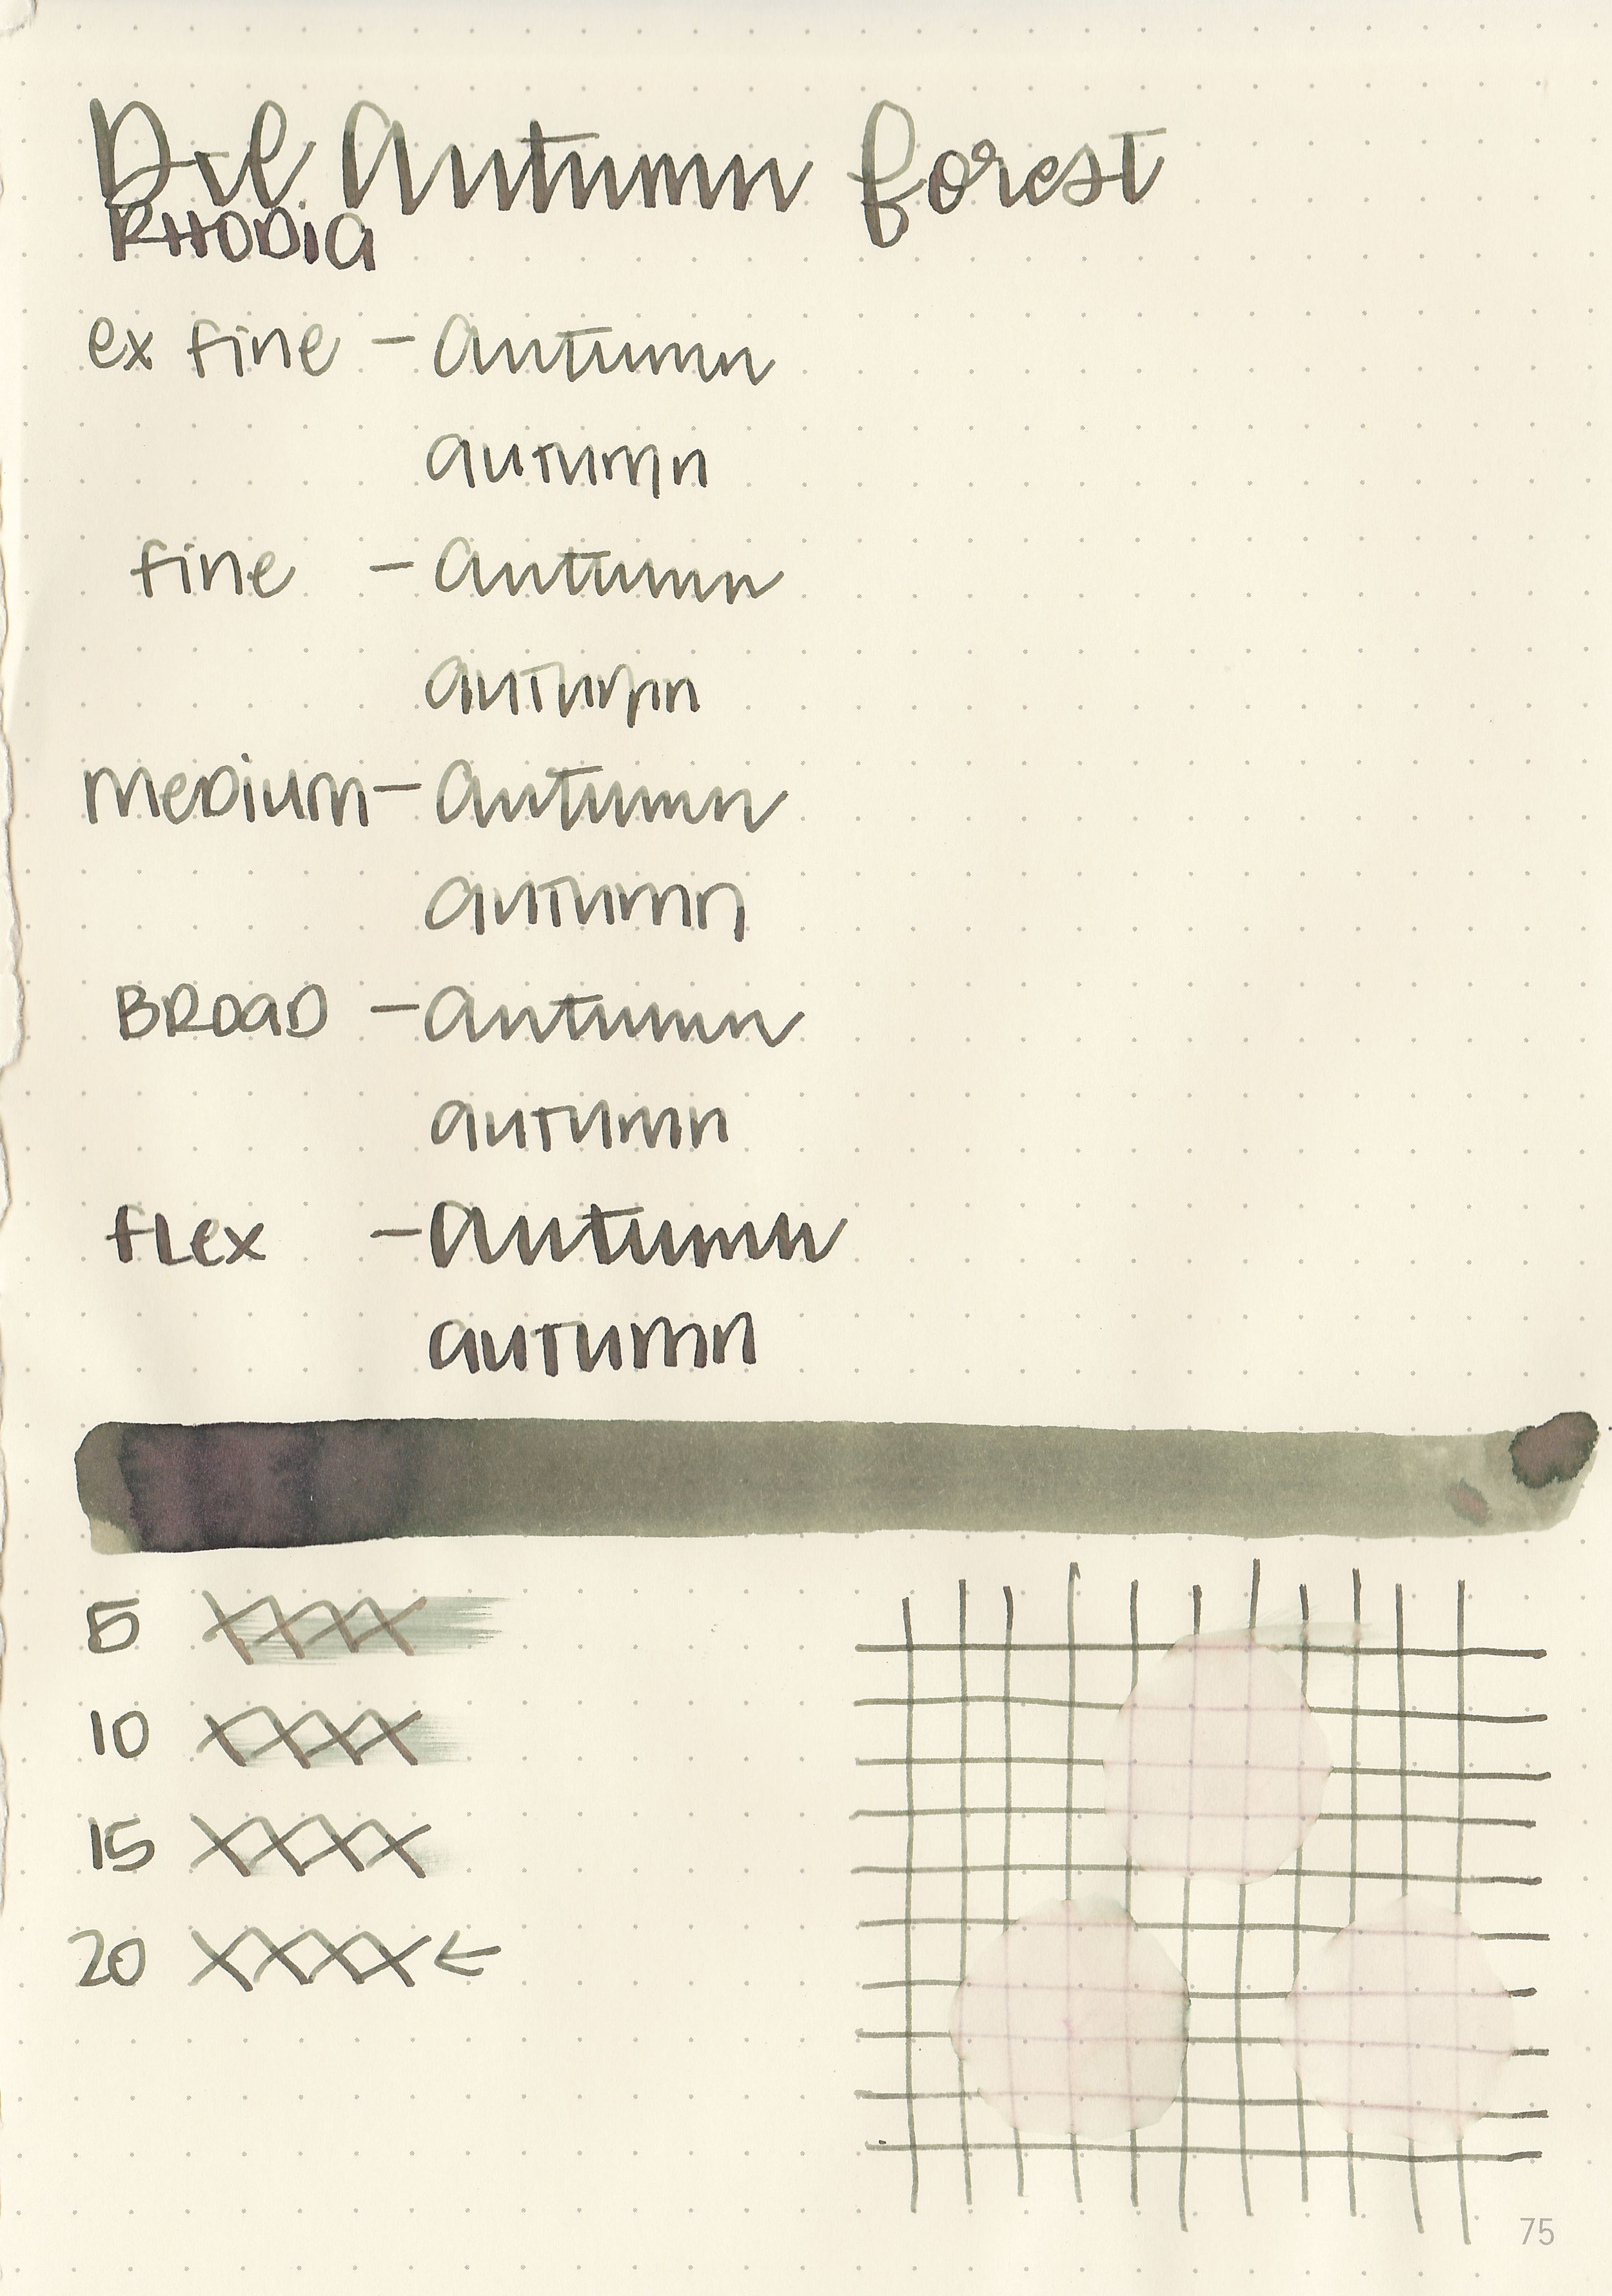 Autumn forest
RHODIA
ex fine - autumn
autumn
fine - autumn
autumn
medium - autumn
autumn
BROAD - autumn
autumn
flex - autumn
autumn
5 XXXX
10 XXXX
15 XXXX
20 XXXX ←
75